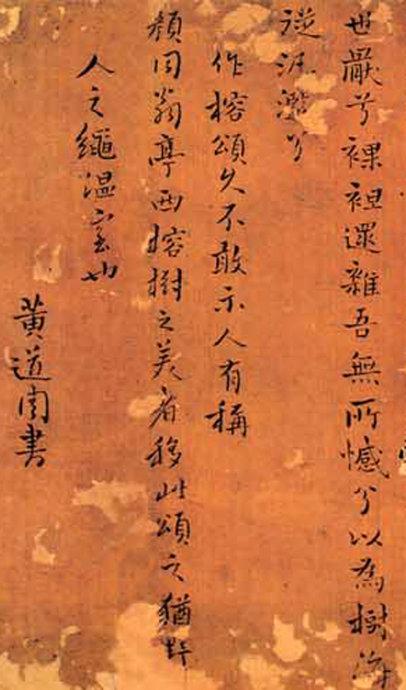 世厭兮裸裎還雜吾無所憾兮以為樹
從汎濫兮
作榕頌久不敢示人有稱
同翁亭西榕樹之美者移此頌之猶野
人之繩温室也
黃道周書